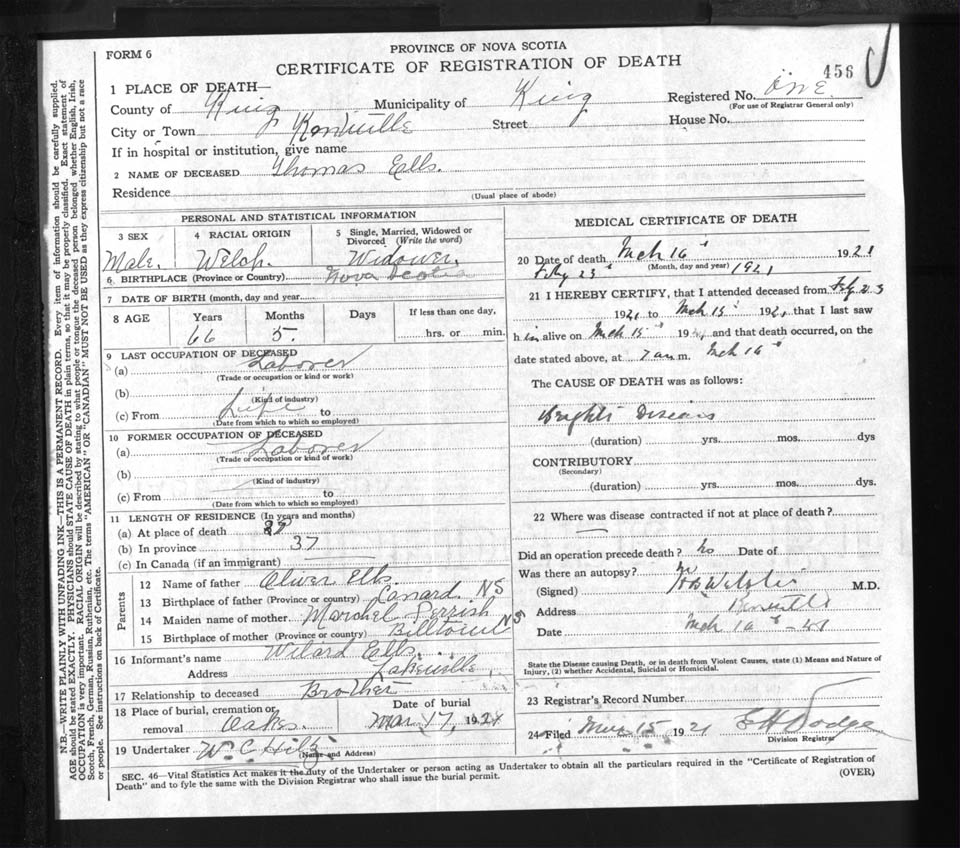 FORM 6
PROVINCE OF NOVA SCOTIA
CERTIFICATE OF REGISTRATION OF DEATH
456
1 PLACE OF DEATH—
Registered No. ONE
(For use of Registrar General only)
County of King Municipality of King
City or Town Kentville Street House No.
If in hospital or institution, give name
2 NAME OF DECEASED Thomas Ells.
Residence
(Usual place of abode)
PERSONAL AND STATISTICAL INFORMATION
3 SEX
Male.
4 RACIAL ORIGIN
Welch.
5 Single, Married, Widowed or Divorced (Write the word)
Widower.
6 BIRTHPLACE (Province or Country) Nova Scotia
7 DATE OF BIRTH (month, day and year
8 AGE Years Months Days If less than one day,
66 5. hrs. or min.
9 LAST OCCUPATION OF DECEASED
(a) Laborer
(Trade or occupation or kind or work)
(b)
(Kind of industry)
(c) From Life to
(Date from which to which so employed)
10 FORMER OCCUPATION OF DECEASED
(a) Laborer
(Trade or occupation or kind of work)
(b)
(Kind of industry)
(c) From to
(Date from which to which so employed)
11 LENGTH OF RESIDENCE (In years and months)
(a) At place of death
(b) In province 37
(c) In Canada (if an immigrant)
Parents
12 Name of father Oliver Ells.
13 Birthplace of father (Province or country) Canard NS
14 Maiden name of mother Perrish
15 Birthplace of mother (Province or country) Billtown NS
16 Informant's name Wilard Ells.
Address Lakeville
17 Relationship to deceased Brother
18 Place of burial, cremation or removal Oaks.
Date of burial
Mar 17, 1921
19 Undertaker W C
(Name and Address)
MEDICAL CERTIFICATE OF DEATH
20 Date of death Mch 16 1921
(Month, day and year) 1921
21 I HEREBY CERTIFY, that I attended deceased from Feby 23
1921 to Mch 15 1921 that I last saw
h im alive on Mch 15 1921 and that death occurred, on the
date stated above, at 7 a m. Mch 16
The CAUSE OF DEATH was as follows:
Brights Disease
(duration) yrs. mos. dys
CONTRIBUTORY
(Secondary)
(duration) yrs. mos. dys.
22 Where was disease contracted if not at place of death?
Did an operation precede death? No Date of
Was there an autopsy?
(Signed) M.D.
Address Kentville
Date Mch 16
State the Disease causing Death, or in death from Violent Causes, state (1) Means and Nature of Injury, (2) whether Accidental, Suicidal or Homicidal.
23 Registrar's Record Number
24 Filed 15 1921 Dodge
Division Registrar
SEC. 46—Vital Statistics Act makes it the duty of the Undertaker or person acting as Undertaker to obtain all the particulars required in the "Certificate of Registration of
Death" and to fyle the same with the Division Registrar who shall issue the burial permit.
(OVER)
N.B.—WRITE PLAINLY WITH UNFADING INK—THIS IS A PERMANENT RECORD. Every item of information should be carefully supplied.
AGE should be stated EXACTLY. PHYSICIANS should STATE CAUSE OF DEATH in plain terms, so that it may be properly classified. Exact statement of
OCCUPATION is very important. RACIAL ORIGIN will be described by stating to what people or tongue the deceased person belonged whether English, Irish,
Scotch, French, German, Russian, Ruthenian, etc. The terms "AMERICAN" OR "CANADIAN" MUST NOT BE USED as they express citizenship but not a race
or people. See instructions on back of Certificate.